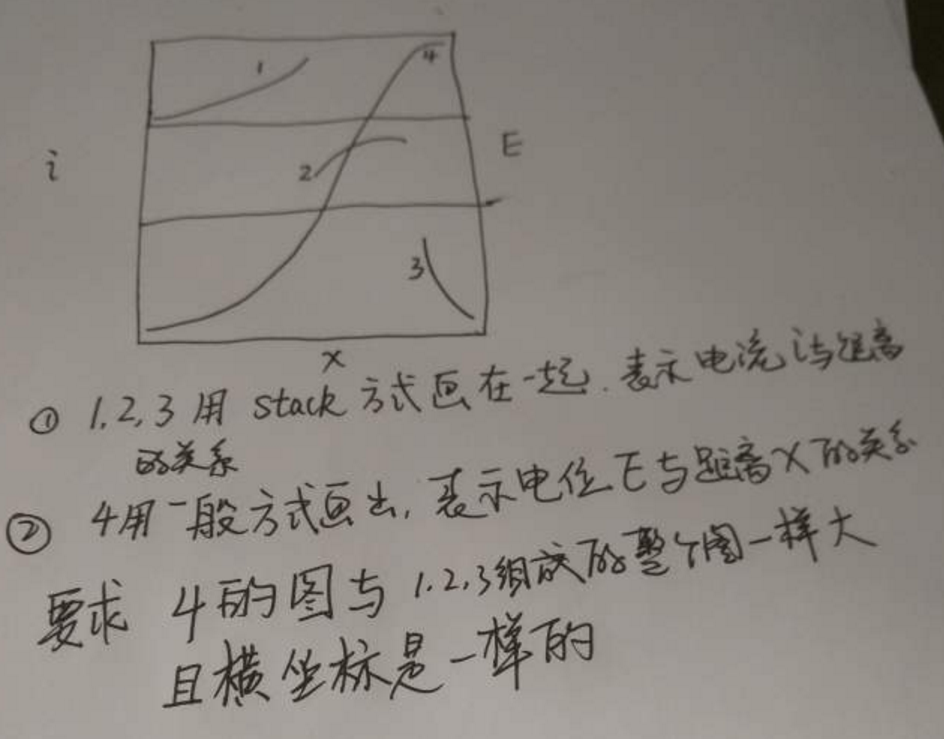 1
4
i
2
E
3
x
① 1,2,3 用 stack 方式画在一起. 表示电流 i 与距离
的关系
② 4用一般方式画出, 表示电位 E 与距离 X 的关系
要求 4的图与 1.2.3组成的整个图一样大
且横坐标是一样的